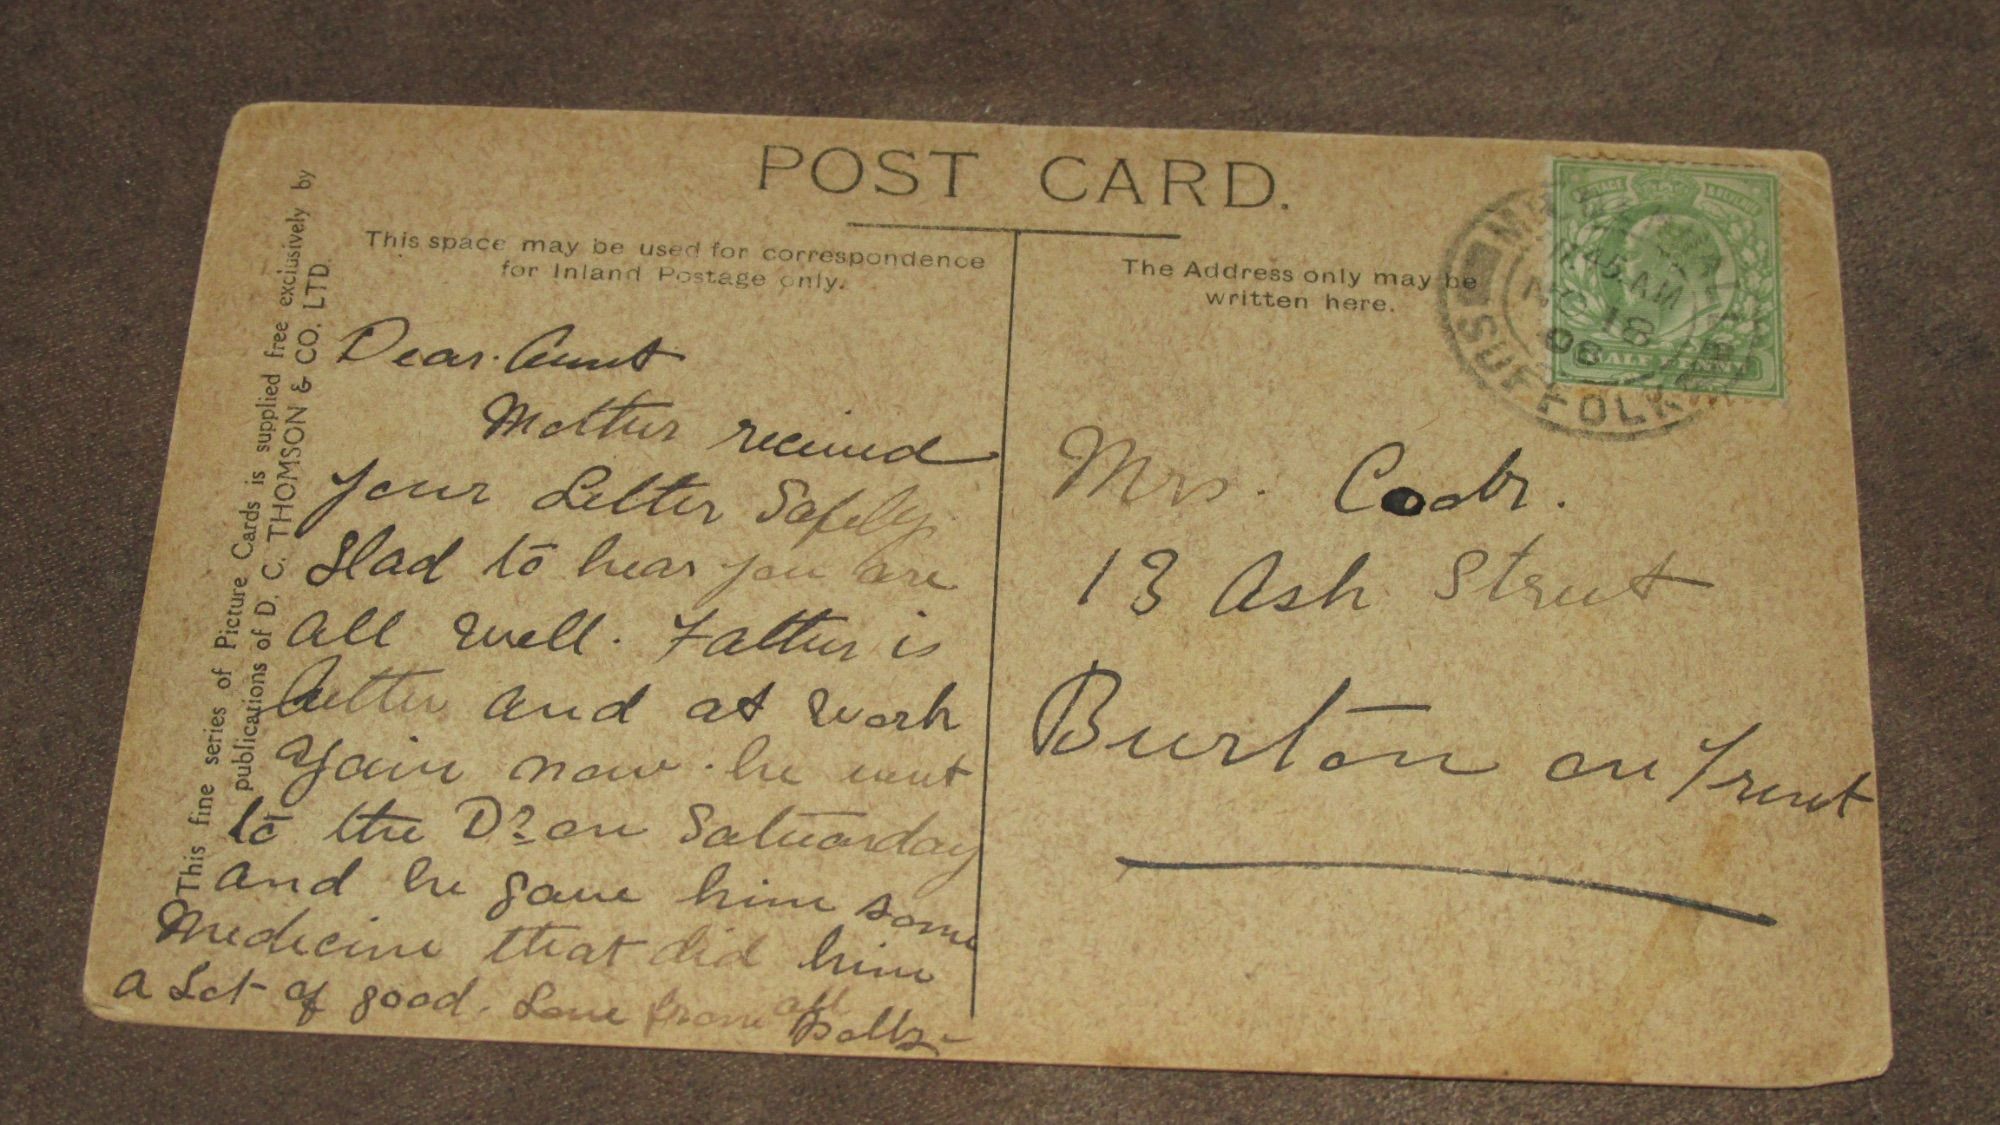 POST CARD.
This space may be used for correspondence
for Inland Postage only.
The Address only may be
written here.
This fine series of Picture Cards is supplied free exclusively by
publications of D. C. THOMSON & CO. LTD.
Dear Aunt
Mother received
your Letter Safely
Glad to hear you are
all well. Father is
better and at work
again now. he went
to the Dr on Saturday
and he gave him some
Medicine that did him
a Lot of good. Love from all
Mrs.
13 Ash Street
Burton on Trent
45 AM
NO 18
08
SUFFOLK
HALF PENNY